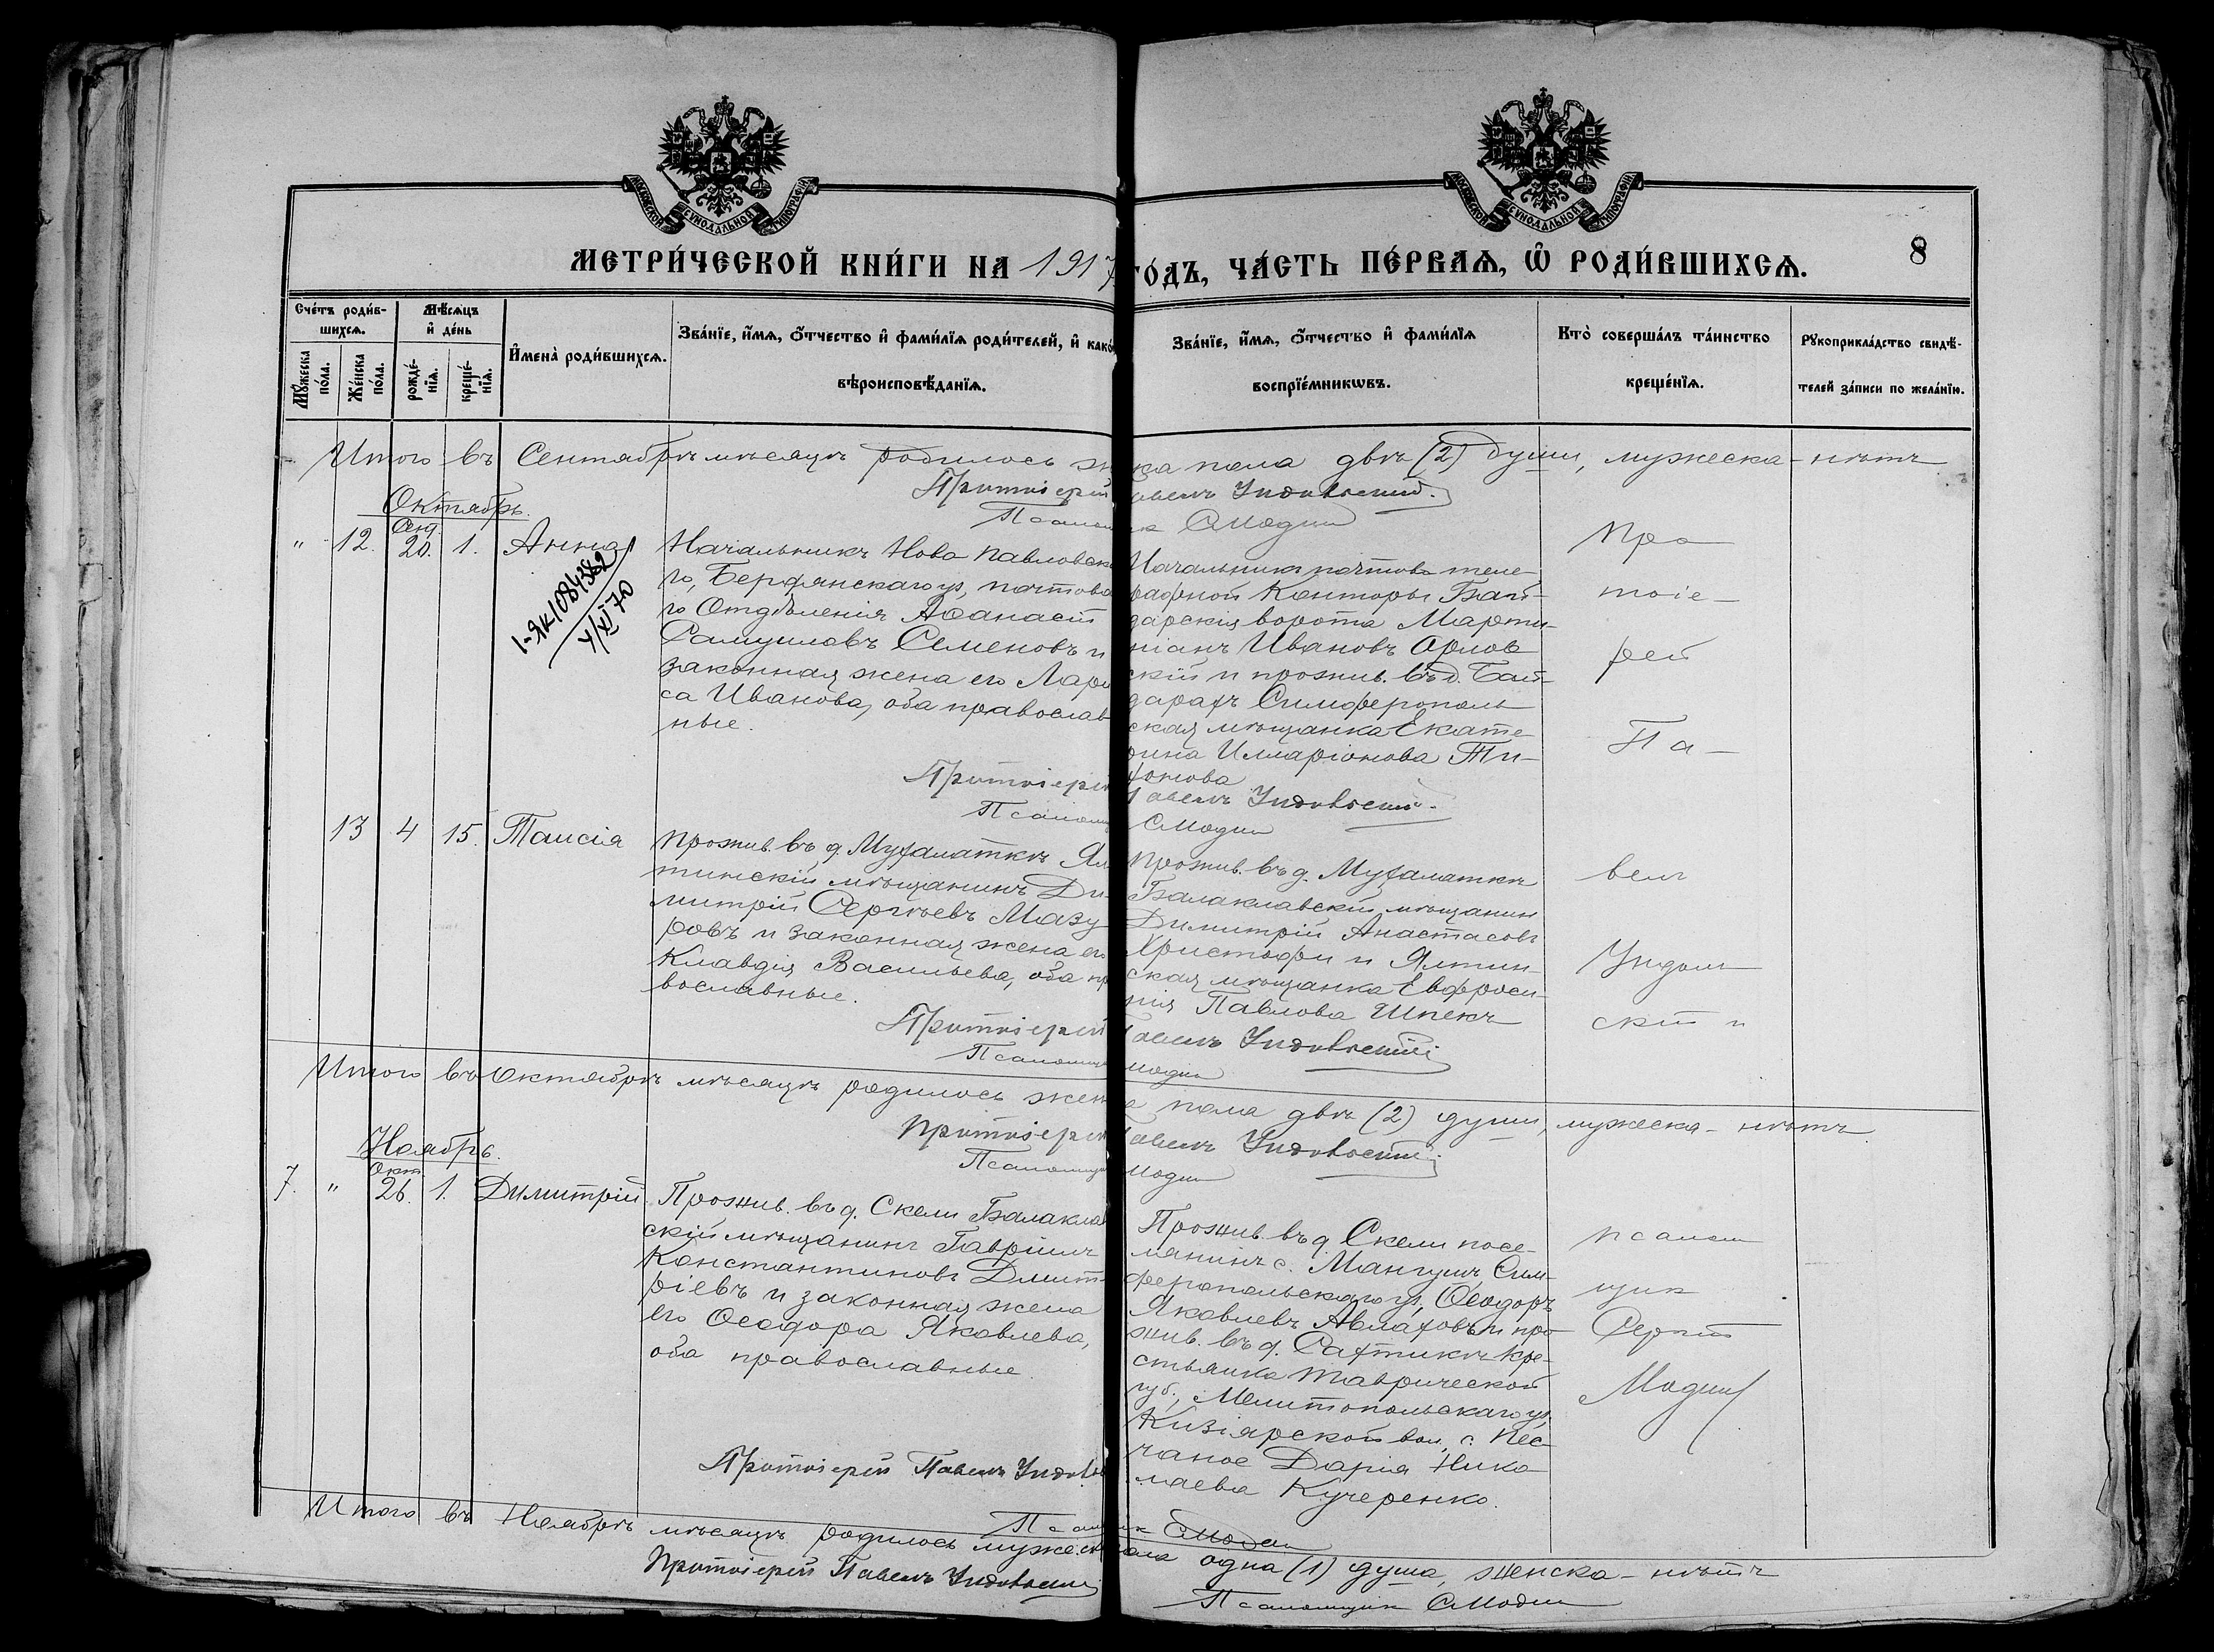 МОСКОВСКОЙ СѴНОДАЛЬНОЙ ТИПОГРАФІИ
МОСКОВСКОЙ СѴНОДАЛЬНОЙ ТИПОГРАФІИ
МЕТРИ́ЧЕСКОЙ КНИ́ГИ НА 1917 ГО́ДЪ, ЧА́СТЬ ПЕ́РВАѦ, Ѡ҆ РОДИ́ВШИХСѦ.
8
Сче́тъ роди́в-
шихсѧ.
Мꙋ́жеска по́ла.
Же́нска по́ла.
Мѣ́сѧцъ
и҆ де́нь
рожде́-
нїѧ.
креще́-
нїѧ.
И҆мена̀ роди́вшихсѧ.
Зва́нїе, и҆́мѧ, ѻ҆́тчество и҆ фами́лїѧ роди́телей, и҆ како́
вѣроисповѣ́данїѧ.
Зва́нїе, и҆́мѧ, ѻ҆́тчество и҆ фами́лїѧ
воспрїе́мникѡвъ.
Кто̀ соверша́лъ та́инство
креще́нїѧ.
Рꙋкоприкла́дство свидѣ́-
телей за́писи по жела́нїю.
Итого въ Сентябрѣ мѣсяцѣ родилось ж ка пола двѣ (2) души, мужеска - нѣтъ
Протоіерей авелъ Ундольскій.
Псалом к СМодин
Октябрь.
" 12. Сент. 20. 1. Анна
1-ЯК 1084382
4/XI 70
Начальникъ Ново Павловска
го, Бердянскаго у, почтова
го Отдѣленія Аѳанасій
Самуиловъ Семеновъ и
законная жена его Лари
са Иванова, оба православ
ные.
Начальникъ почтово теле-
рафной Конторы Бай-
дарскія ворота Марти-
ніанъ Ивановъ Орлов
скій и прожив. въ д. Бай-
дарахъ Симферополь
ская мѣщанка Екате
рина Илларіонова Ти-
хонова
Протоіерей авелъ Ундольскій.
Псалом СМодин
13 4 15. Таисія
Прожив. въ д. Мухалаткѣ Ял
тинскій мѣщанинъ Ди-
митрій Сергѣевъ Мазу
ровъ и законная жена его
Клавдія Васильева, оба пр
вославные.
Прожив. въ д. Мухалаткѣ
Балаклавскій мѣщанин
Димитрій Анастасовъ
Христофи и Ялтин-
ская мѣщанка Евфроси-
нія Павлова Шпекъ
Протоіерей авелъ Ундольскій
Псаломщ Модин
Итого въ Октябрѣ мѣсяцѣ родилось жен а пола двѣ (2) души, мужеска - нѣтъ
Протоіерей авелъ Ундольскій
Псаломщ Модин
Ноябрь.
7. " Окт. 26. 1. Димитрій
Прожив. въ д. Скели Балаклав
скій мѣщанинъ Гавріилъ
Константиновъ Дмит-
ріевъ и законная жена
его Ѳеодора Яковлева,
оба православные.
Прожив. въ д. Скели посе-
лянинъ с. Мангушъ, Сим-
феропольскаго у., Ѳеодоръ
Яковлевъ Авлаховъ и про
жив. въ д. Сахтикъ кре-
стьянка Таврической
губ., Мелитопольскаго у.
Кизіярской вол., с. Пес-
чаное Дарія Нико
лаева Кучеренко.
Про
тоіе-
рей
Па-
велъ
Ундоль
скій и
псалом
щик
Сергій
Модин
Протоіерей Павелъ Ундольс
Псалом к СМодин
Итого въ Ноябрѣ мѣсяцѣ родилось мужеск пола одна (1) душа, женска - нѣтъ
Протоіерей Павелъ Ундольскій
Псаломщик СМодин